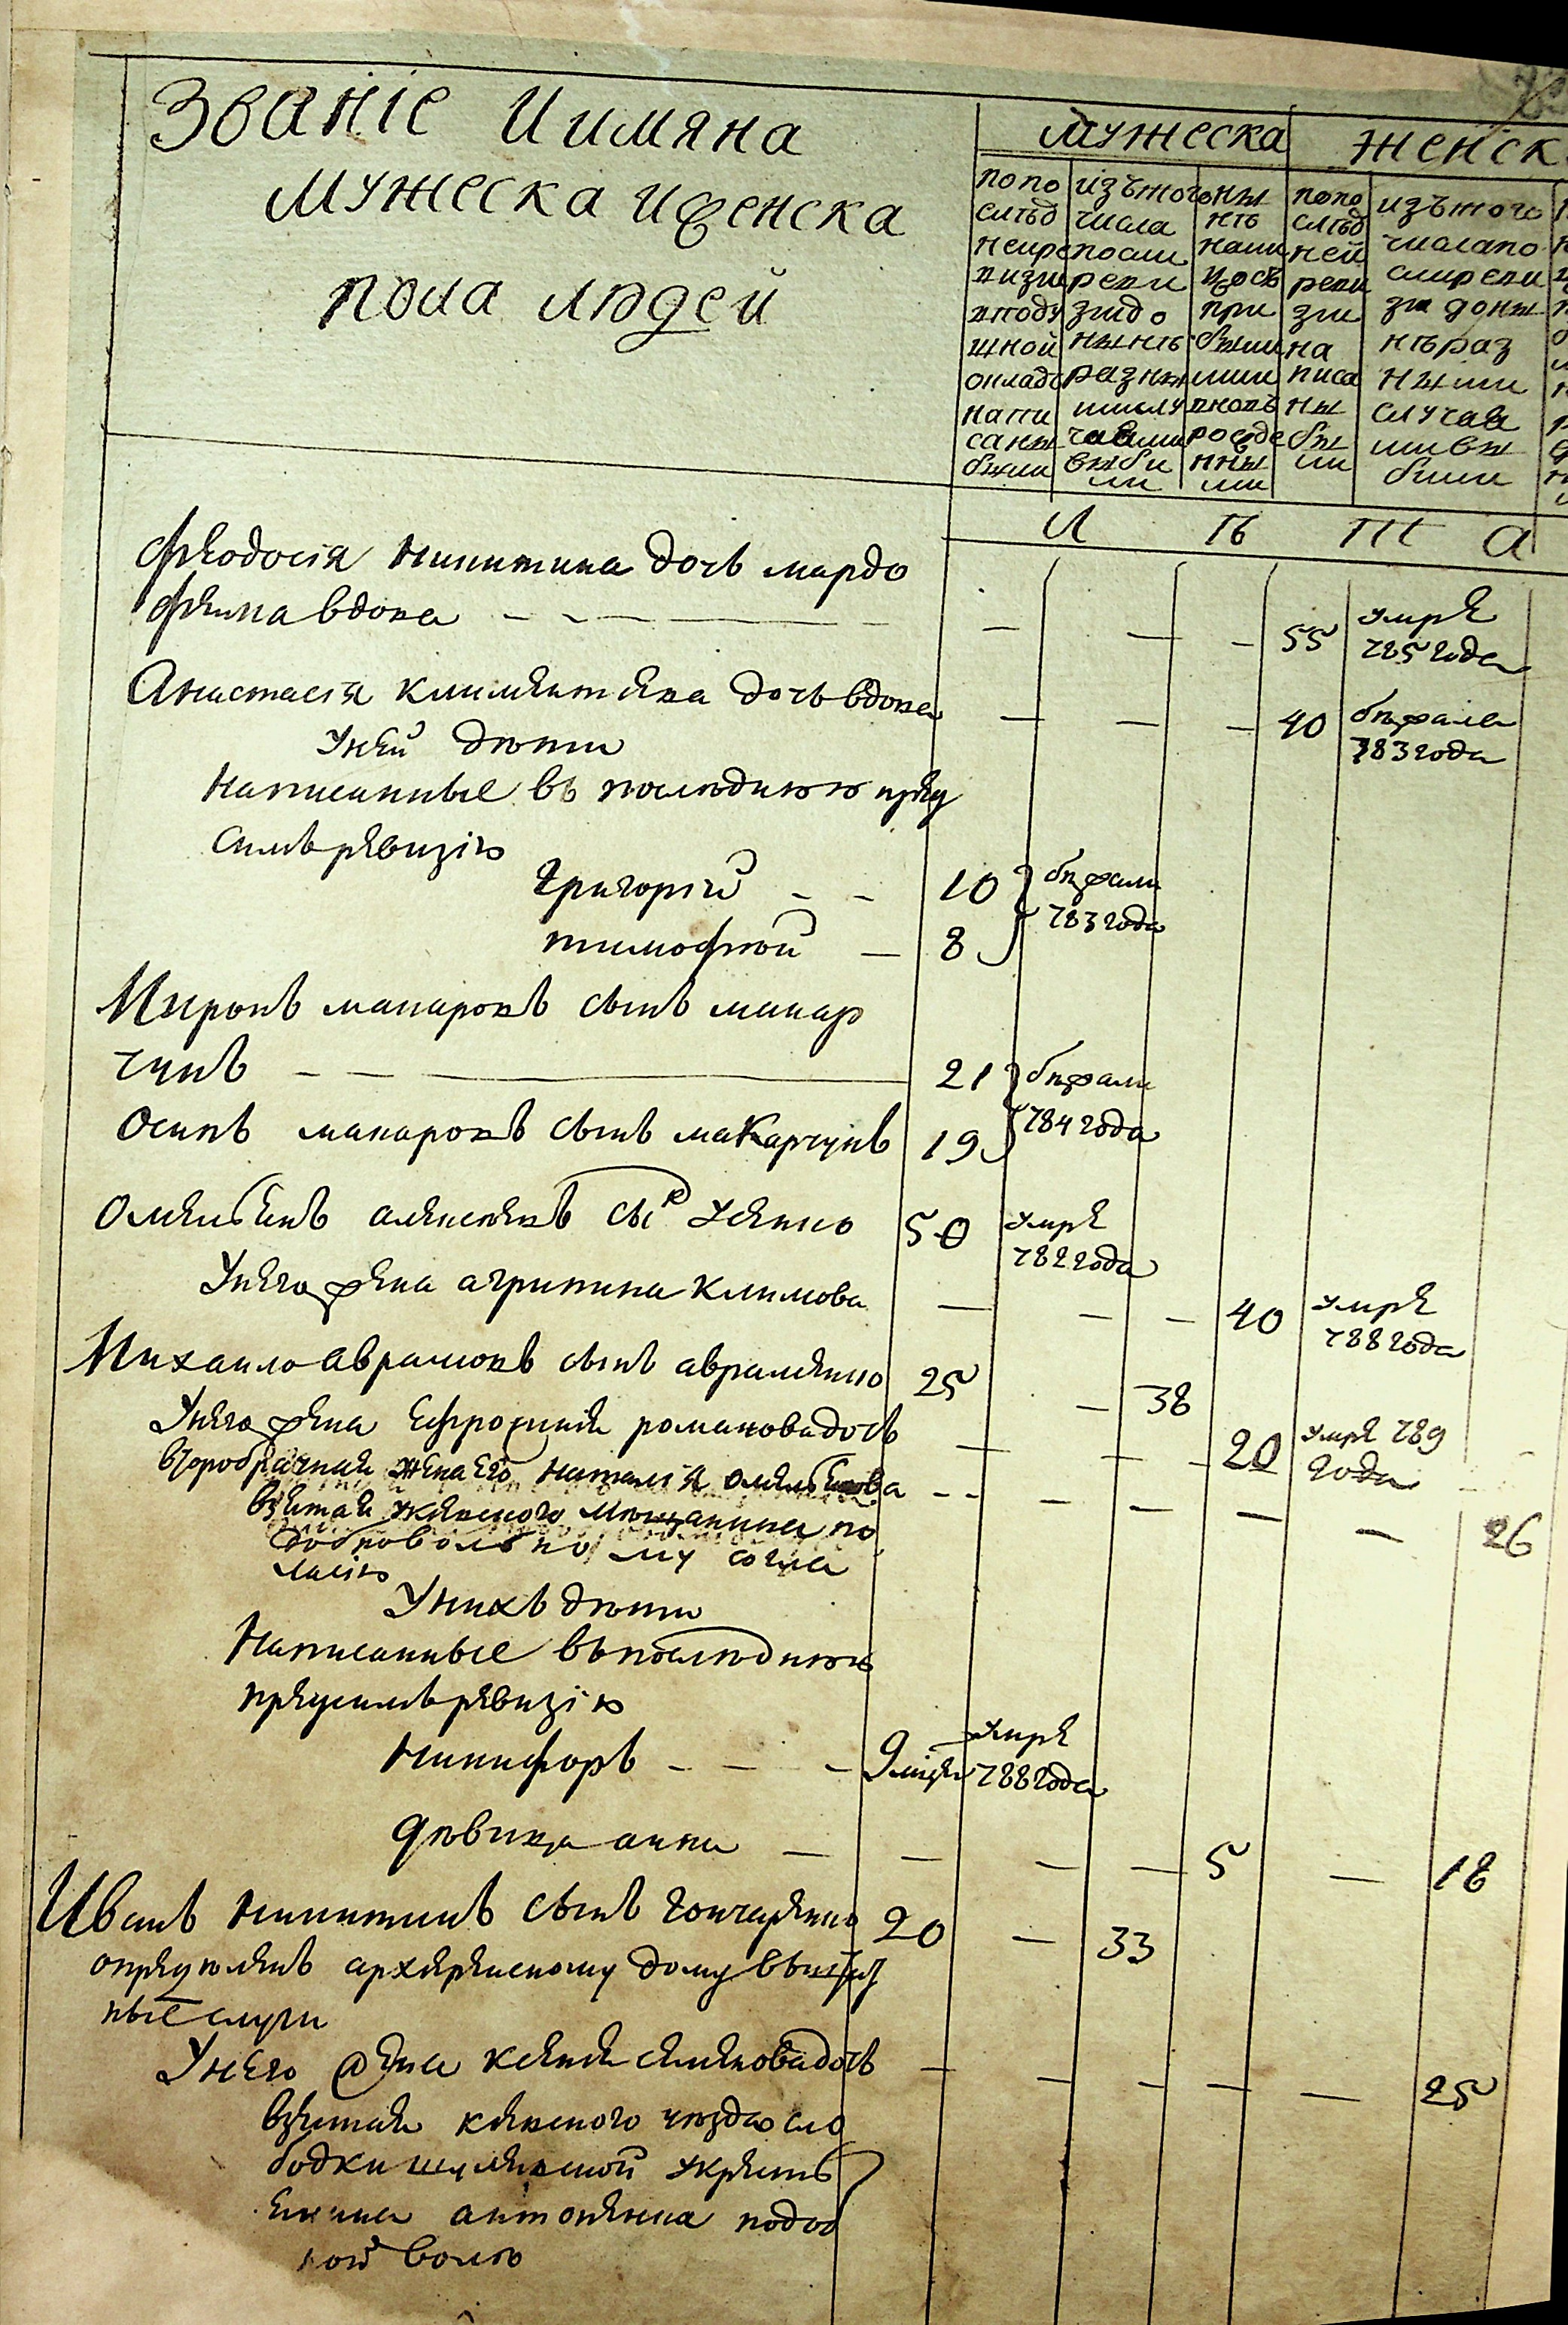 Званіе Иимяна
Мужеска иженска
пола людей
Мужеска
Женск
попо
слѣд
неире
визи
иподу
шной
окладъ
напи
саны
были
изътого
числа
посли
реви
зіидо
нынѣ
разны
мислу
чаями
выбы
ли
ны
нѣ
нали
цосъ
при
были
ми
вновь
рожде
нны
ми
попо
слѣд
ней
реви
зіи
на
писа
ны
бы
ли
изътого
числапо
слиреви
зіи доны
нѣраз
ными
случая
ми вы
были
Л Ѣ Т А
Феодосія Никитина дочь мардо
фѣина вдова — — — 55 умре
785 года
Анастасія климентѣва дочь вдова — — — 40 бѣжала
783 года
Уней дѣти
Написанные въ послѣднюю пред
симъ ревизію
Григорій — — 10 бѣжали
783 года
тимофѣй — 8
Миронъ макаровъ сынъ макар
чукъ — — 21 бѣжали
784 года
Осипъ макаровъ сынъ макарчукъ 19
Омельянъ алексѣевъ сы усенко 50 умре
782 года
Унего жена агрипина климова — — — 40 умре
788 года
Михаило аврамовъ сынъ авраменко 25 — 38
Унего жена ефросинія романова дочь — — — 20 умре 789
года
второбрачная жена его Наталія омельянова — — — — — — 26
взятая кіевского мѣщанина по
добровольному согла
сію
Унихъ дѣти
Написанные въ послѣднюю
предсимъ ревизію
Никифоръ — — — 9 мцей умре
788 года
дѣвица анна — — — — 5 — 18
Иванъ Никитинъ сынъ гончаренко 20 — 33
опредѣленъ архиерейскому дому въ шта
ные слуги
Унего жена ксенія семенова дочь — — — — — 25
взятая кіевского уезда сло
бодки шулявской
антоненка подоб
ной волѣ